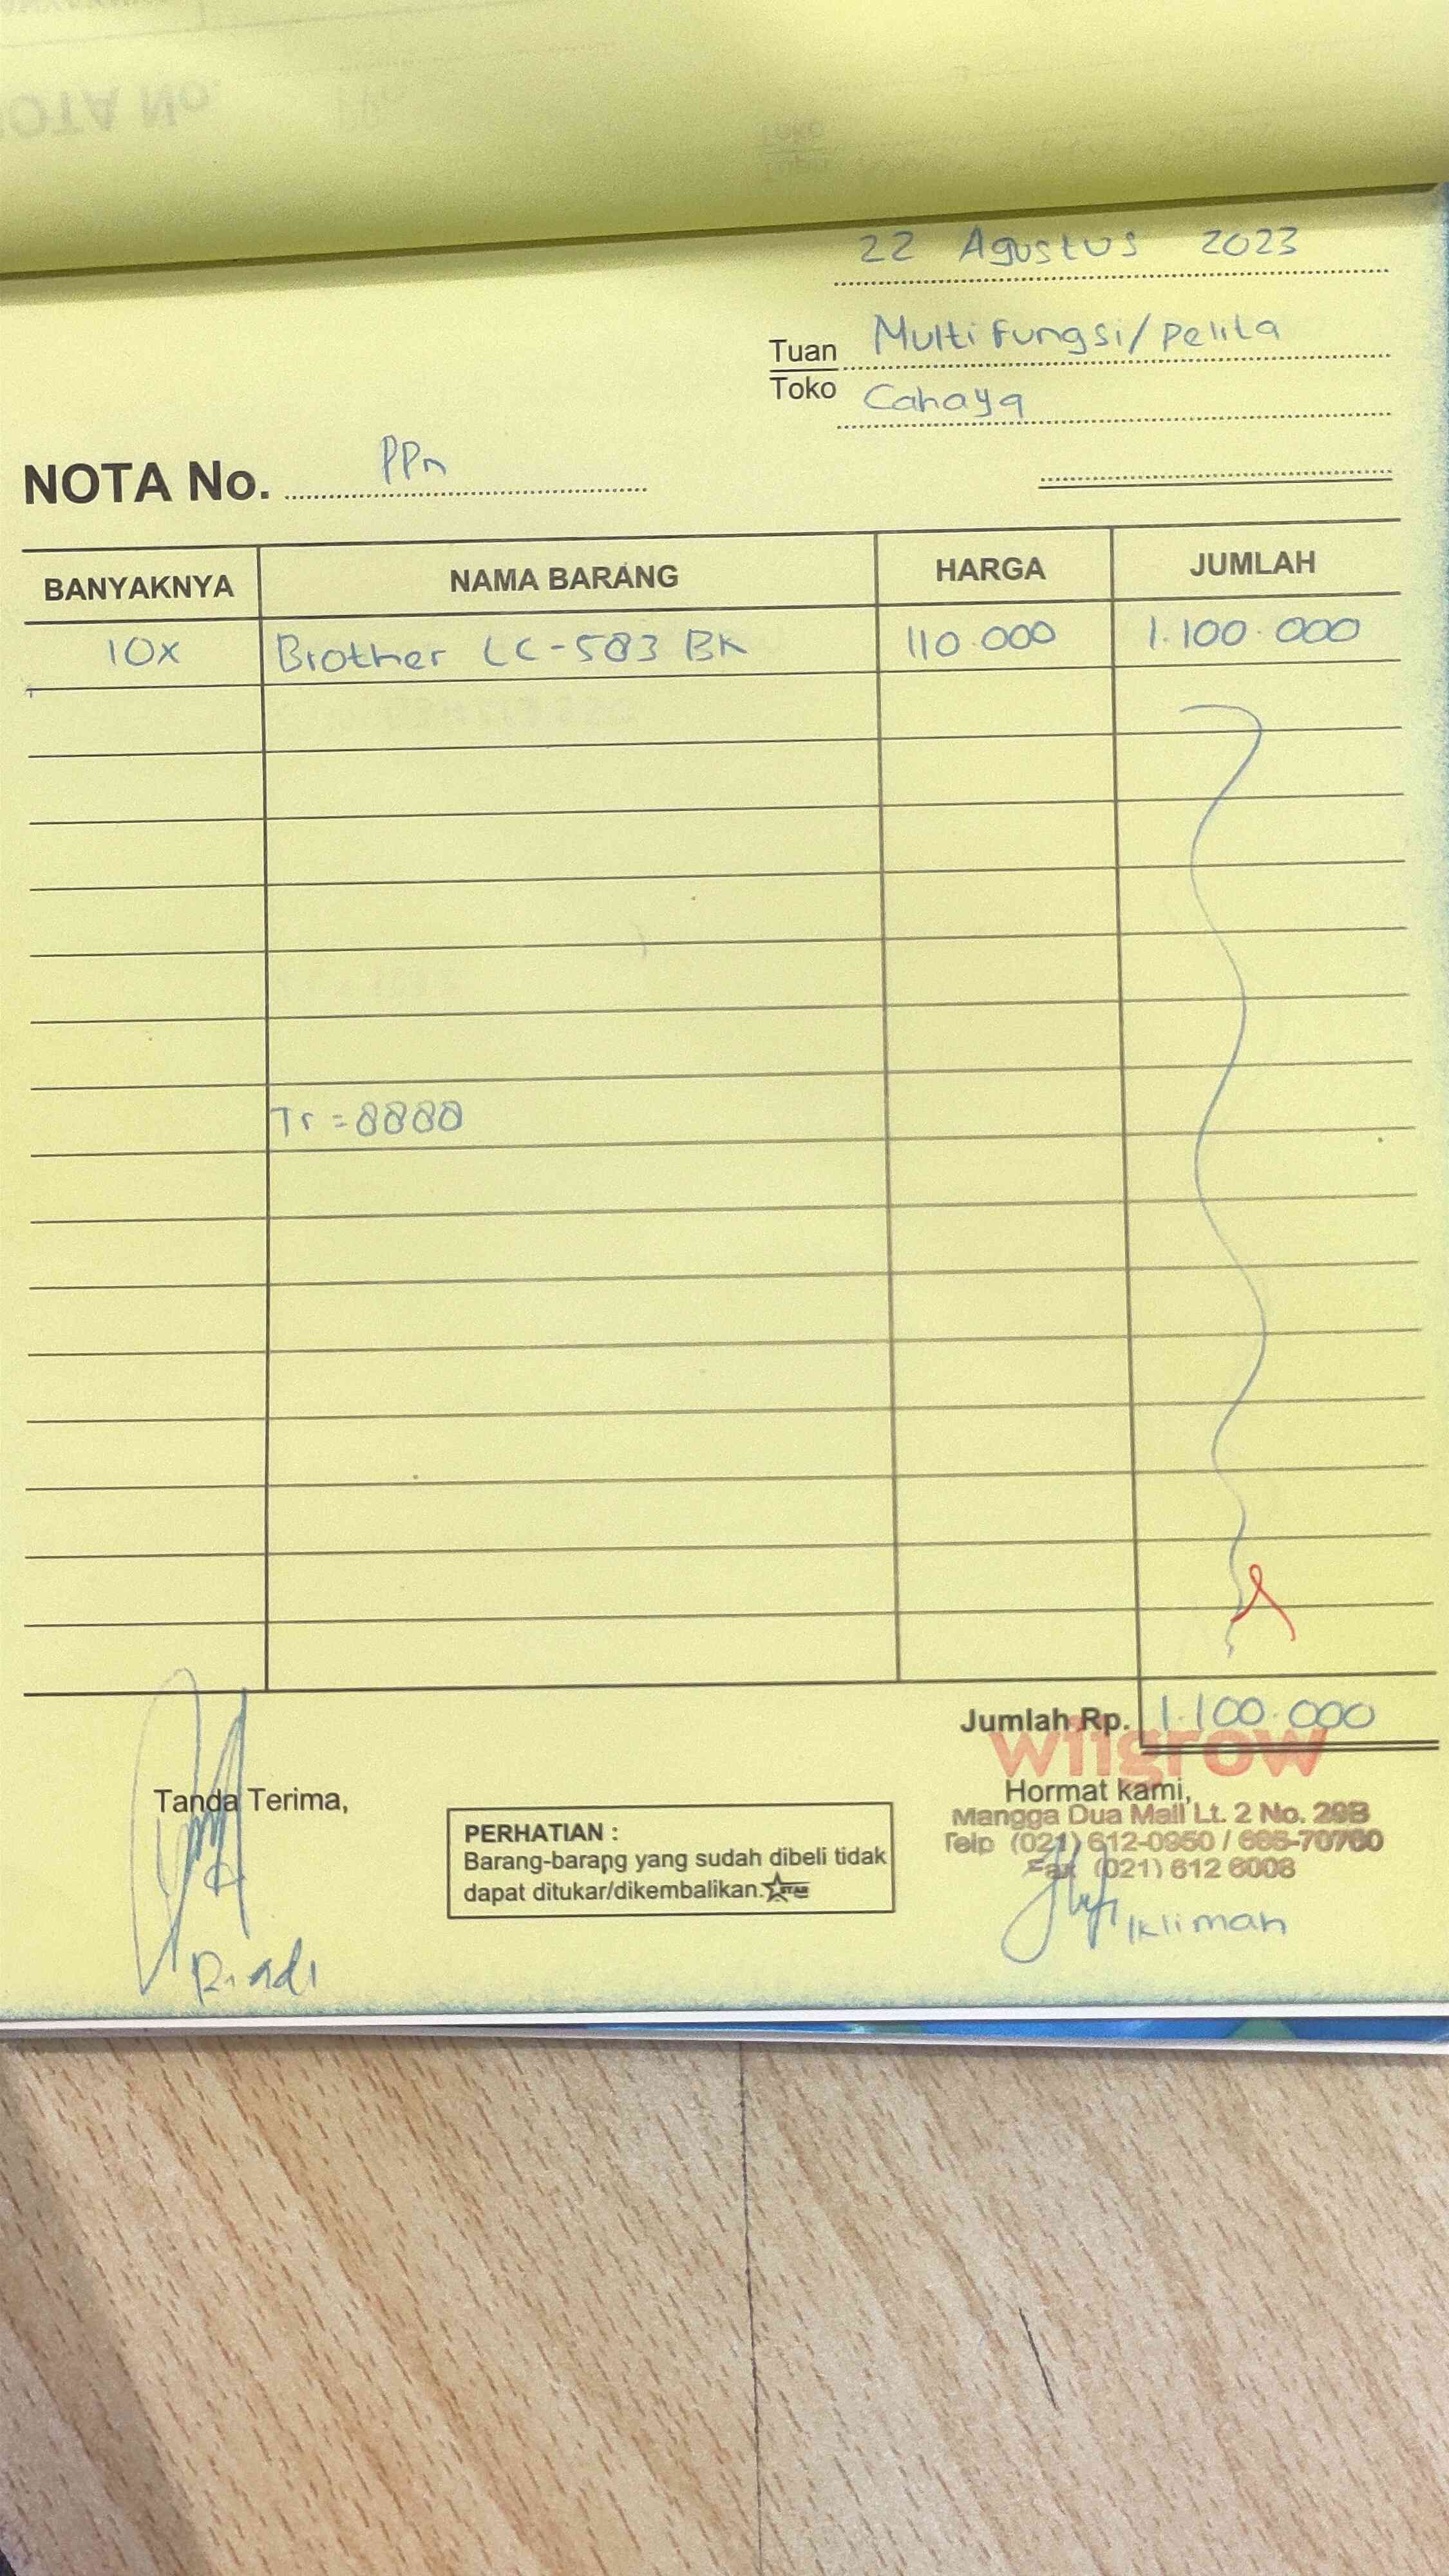 22 Agustus 2023
Tuan Multifungsi/Pelita
Toko Cahaya
NOTA No. PPn
BANYAKNYA NAMA BARANG HARGA JUMLAH
10x Brother LC-583 BK 110.000 1.100.000
Tr = 8888
Jumlah Rp. 1.100.000
wiigrow
Tanda Terima,
Hormat kami,
Mangga Dua Mall Lt. 2 No. 29B
Telp (021) 612-0950 / 668-70760
Fax (021) 612 6008
PERHATIAN :
Barang-barang yang sudah dibeli tidak
dapat ditukar/dikembalikan. STAR
Ikliman
Riadi